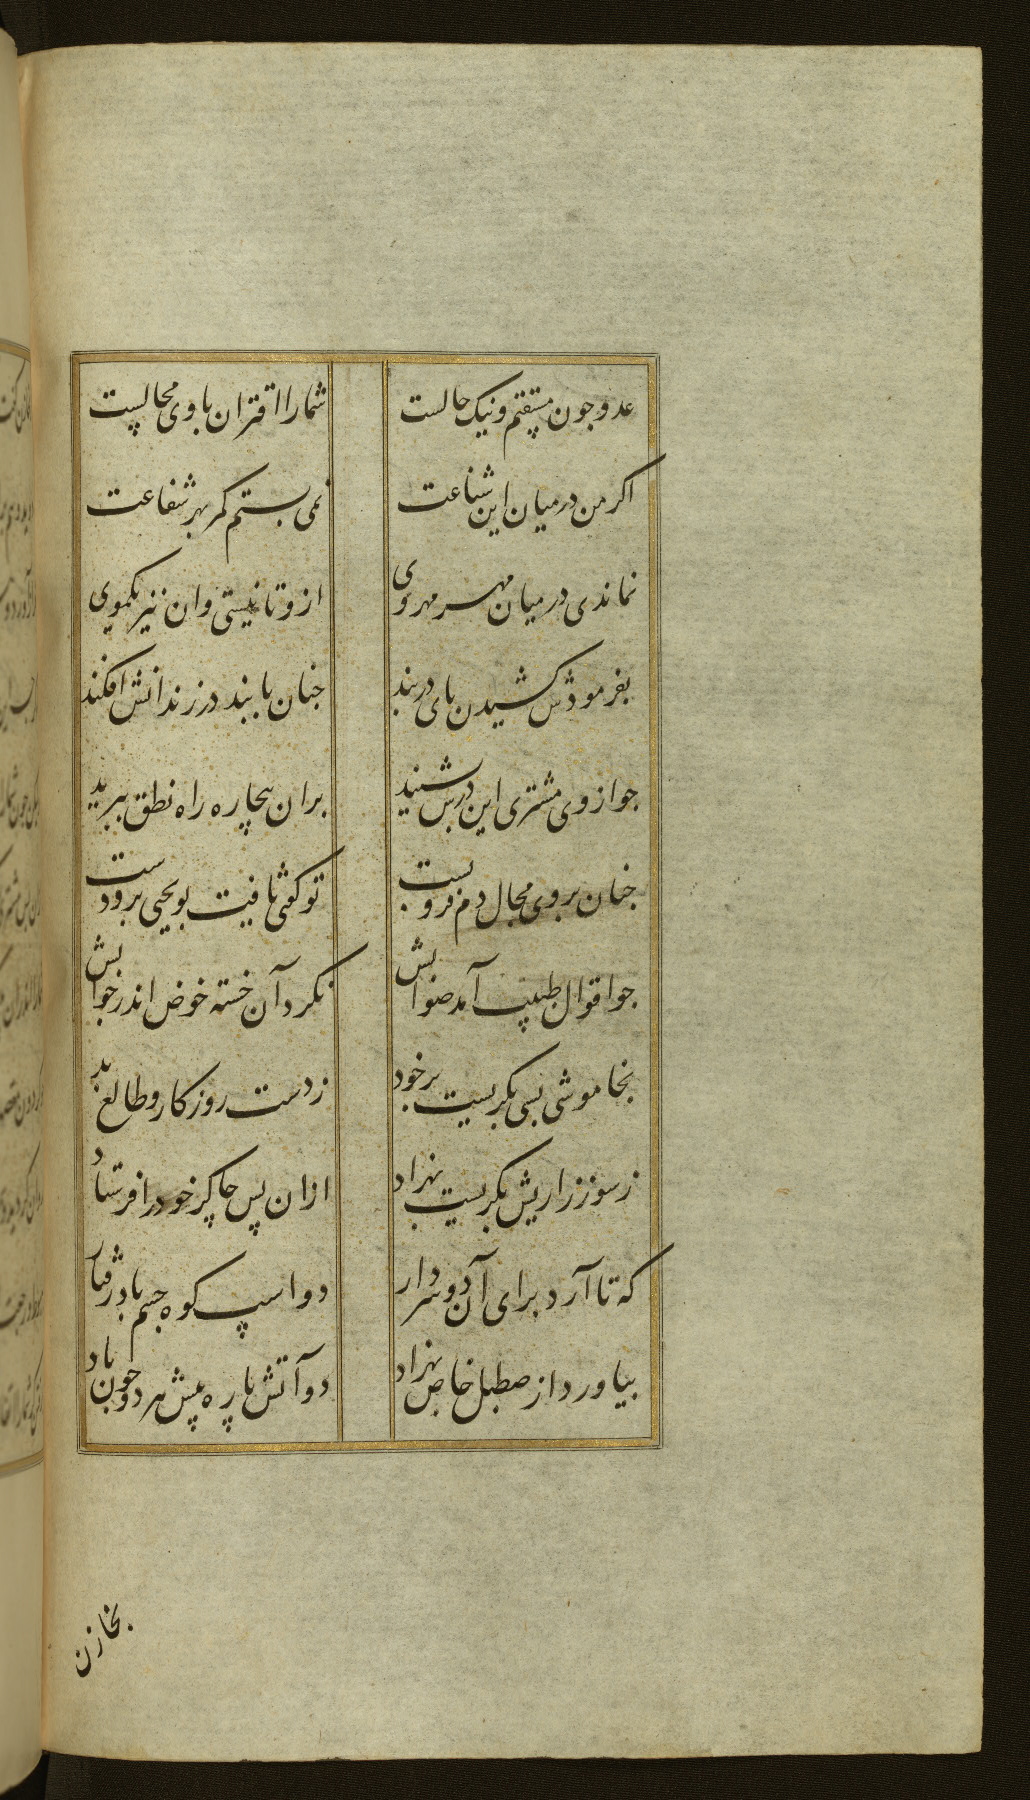 عدو جون مستقیم و نیک حالست شما را اقتران با وی محالست
اکر من در میان این شناعت نمی بستم کمر بهر شفاعت
نماندی در میان مهر مهروی ازو تا نیستی وان نیز یکموی
بفرمودش کشیدن بای در بند جنان با بند در زندانش افکند
جو از وی مشتری این درس شنید بران بیچاره راه نطق ببرید
جنان بر وی مجال دم فرو بست تو کفتی بر و دست
جو اقوال طبیب آمد صوابش نکرد آن خسته خوض اندر جوابش
بخاموشی بسی بکریست بر خود ز دست روزکار و طالع بد
ز سوز زاریش بکریست بهزاد ازان پس چاکر خود را فرستاد
که تا آرد برای آن دو سردار دو اسپ کوه جسم باد رفتار
بیاورد از صطبل خاص بهزاد دو آتش پاره پیش هر دو جون باد
بخازن